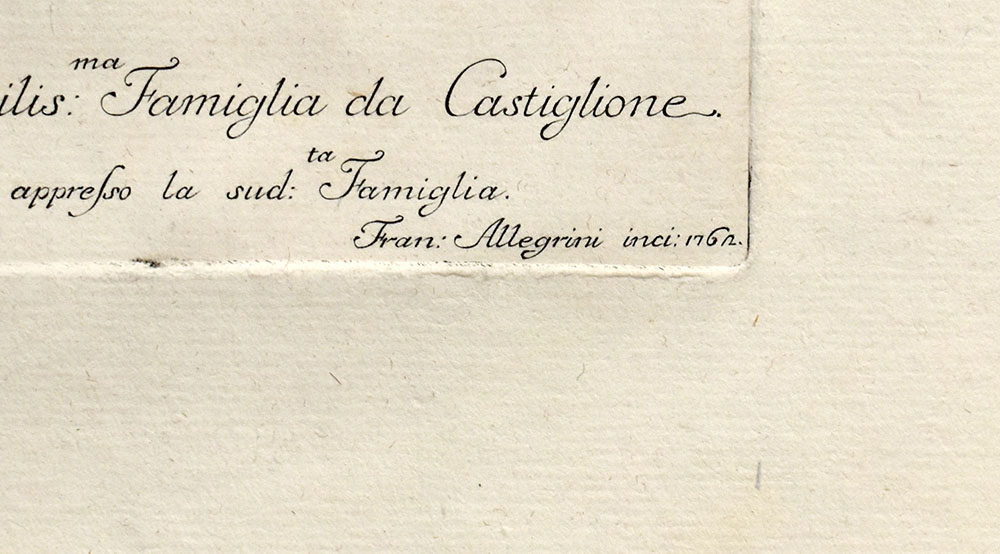 ilis:ma Famiglia da Castiglione.
appreſso la sud:ta Famiglia.
Fran: Allegrini inci: 1762.